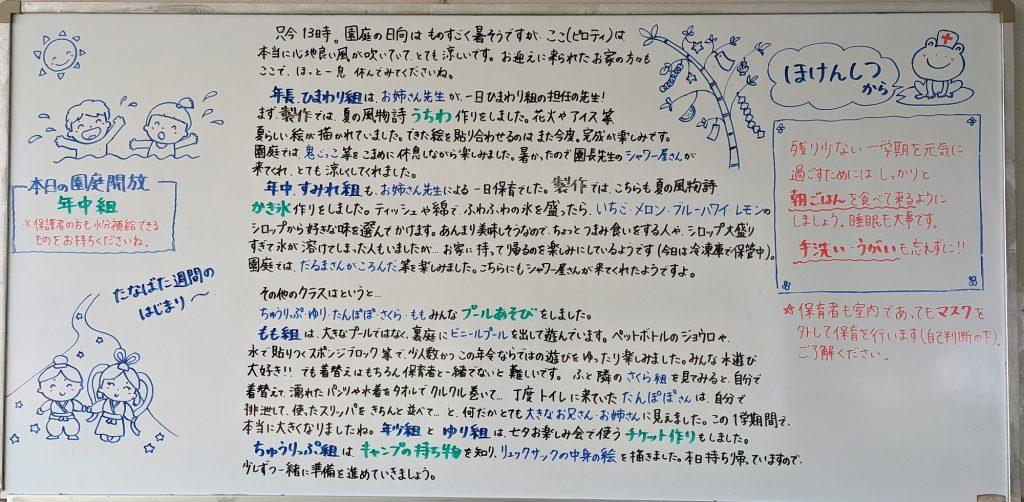 只今13時。園庭の日向はものすごく暑そうですが、ここ(ピロティ)は
本当に心地良い風が吹いていて、とても涼しいです。お迎えに来られたお家の方々も
ここで、ほっと一息 休んでみてくださいね。
年長 ひまわり組は、お姉さん先生が、一日ひまわり組の担任の先生!
まず、製作では、夏の風物詩 うちわ 作りをしました。花火やアイス等
夏らしい絵が描かれていました。できた絵を貼り合わせるのはまた今度。完成が楽しみです。
園庭では、鬼ごっこ等をこまめに休息しながら楽しみました。暑かったので園長先生のシャワー屋さんが
来てくれ、とても涼しくしてくれました。
年中 すみれ組も、お姉さん先生による一日保育でした。製作では、こちらも夏の風物詩
かき氷作りをしました。ティッシュや綿で、ふわふわの氷を盛ったら、いちご・メロン・ブルーハワイ・レモンの
シロップから好きな味を選んでかけます。あんまり美味しそうなので、ちょっとつまみ食いをする人や、シロップ大盛り
すぎて氷が溶けてしまった人もいましたが、お家に持って帰るのを楽しみにしているようです(今日は冷凍庫で保管中)。
園庭では、だるまさんがころんだ等を楽しみました。こちらにもシャワー屋さんが来てくれたようですよ。
その他のクラスはというと…
ちゅうりっぷ・ゆり・たんぽぽ・さくら・ももみんなプールあそびをしました。
もも組は、大きなプールではなく、裏庭にビニールプールを出して遊んでいます。ペットボトルのジョウロや、
水で貼りつくスポンジブロック等で、少人数かつこの年令ならではの遊びをゆったり楽しみました。みんな水遊び
大好き!!でも着替えはもちろん保育者と一緒でないと難しいです。ふと隣のさくら組を見てみると、自分で
着替えて、濡れたパンツや水着をタオルでクルクル巻いて… 丁度トイレに来ていたたんぽぽさんは、自分で
排泄して、使ったスリッパをきちんと並べて…と、何だかとても大きなお兄さん・お姉さんに見えました。この1学期間で、
本当に大きくなりましたね。年少組とゆり組は、七夕お楽しみ会で使うチケット作りもしました。
ちゅうりっぷ組は、キャンプの持ち物を知り、リュックサックの中身の絵を描きました。本日持ち帰っていますので、
少しずつ一緒に準備を進めていきましょう。
本日の園庭開放
年中組
※保護者の方も水分補給できる
ものをお持ちくださいね。
たなばた週間の
はじまり〜
ほけんしつ
から
残り少ない一学期を元気に
過ごすためには、しっかりと
朝ごはんを食べて来るように
しましょう。睡眠も大事です。
手洗い・うがいも忘れずに!!
☆保育者も室内であってもマスクを
外して保育を行います(自己判断の下)。
ご了解ください。